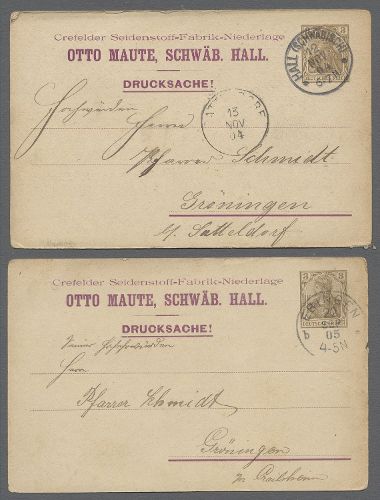 Crefelder Seidenstoff-Fabrik-Niederlage
OTTO MAUTE, SCHWÄB. HALL.
DRUCKSACHE!
HALL (SCHWÄBISCH)
NOV
3
13
NOV
04
Hochwürden
Herrn
Pfarrer Schmidt
Gröningen
b/ Satteldorf
Crefelder Seidenstoff-Fabrik-Niederlage
OTTO MAUTE, SCHWÄB. HALL.
DRUCKSACHE!
3
b 05
4-5N
Seiner Hochehrwürden
Herrn
Pfarrer Schmidt
Gröningen
bei Crailsheim